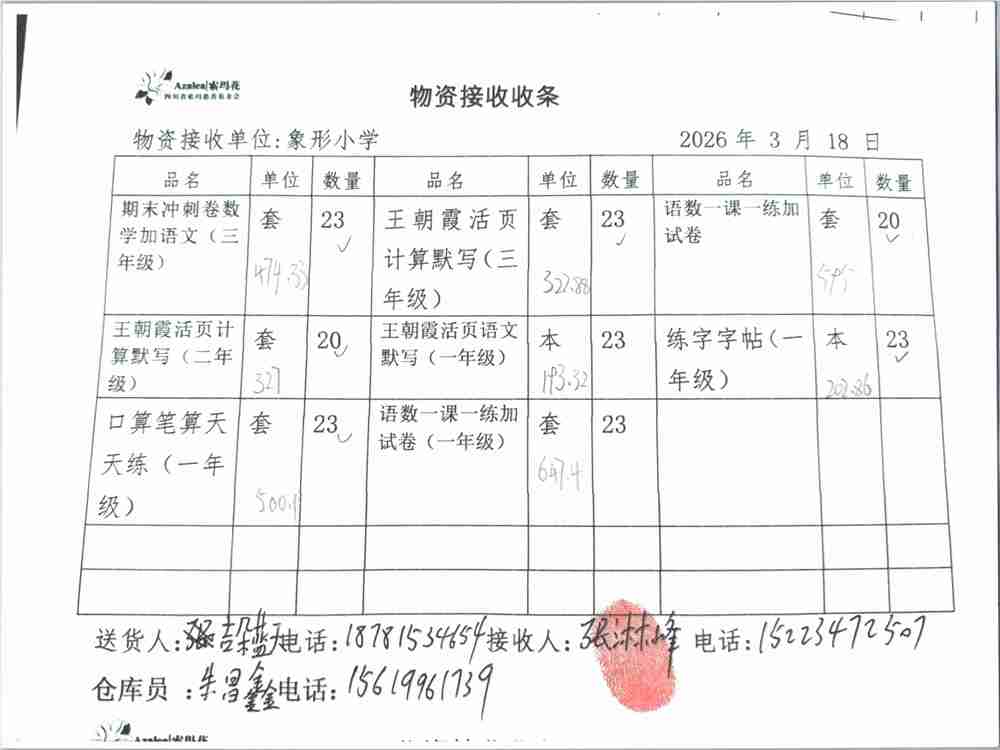 Azalea|索玛花
四川省索玛慈善基金会
物资接收收条
物资接收单位:象形小学 2026 年 3 月 18 日
品名 单位 数量 品名 单位 数量 品名 单位 数量
期末冲刺卷数学加语文（三年级） 套 23 王朝霞活页计算默写（三年级） 套 23 语数一课一练加试卷 套 20
474.33 322.88 595
王朝霞活页计算默写（二年级） 套 20 王朝霞活页语文默写（一年级） 本 23 练字字帖（一年级） 本 23
327 193.32 202.86
口算笔算天天练（一年级） 套 23 语数一课一练加试卷（一年级） 套 23
500.1 647.4
送货人: 电话:18781534654 接收人: 张淋峰 电话:15223472507
仓库员 :朱昌鑫 电话:15619961739
Azalea|索玛花